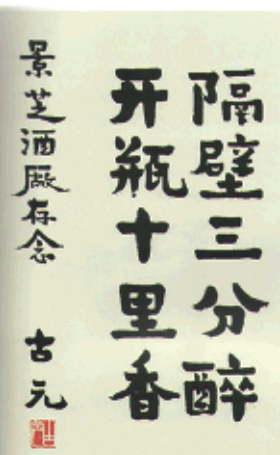 隔壁三分醉
开瓶十里香
景芝酒厰存念
古元